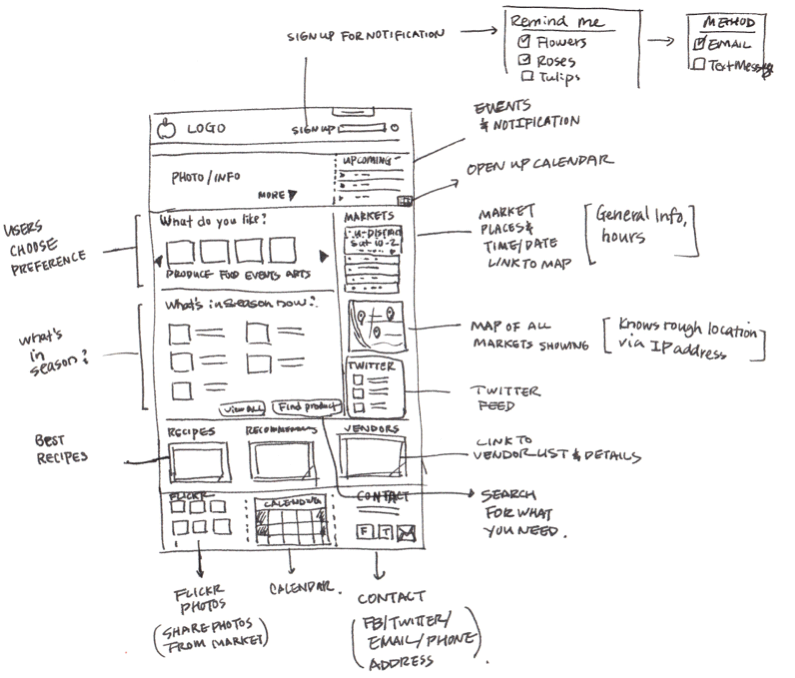 SIGN UP FOR NOTIFICATION
Remind me
Flowers
Roses
Tulips
METHOD
EMAIL
Text Message
LOGO
SIGN UP
EVENTS
& NOTIFICATION
PHOTO/INFO
MORE
UPCOMING
OPEN UP CALENDAR
USERS
CHOOSE
PREFERENCE
What do you like?
PRODUCE FOOD EVENTS ARTS
MARKETS
U-District
Sat 10-2
MARKET
PLACES &
TIME/DATE
LINK TO MAP
General Info,
hours
What's in season now?
what's
in
season?
View All
Find product
MAP OF ALL
MARKETS SHOWING
Knows rough location
via IP address
TWITTER
TWITTER
FEED
BEST
RECIPES
RECIPES
VENDORS
LINK TO
VENDOR LIST & DETAILS
SEARCH
FOR WHAT
YOU NEED.
FLICKR
CALENDAR
CONTACT
F T
FLICKR
PHOTOS
(SHARE PHOTOS
FROM MARKET)
CALENDAR.
CONTACT
(FB/TWITTER/
EMAIL/PHONE
ADDRESS).